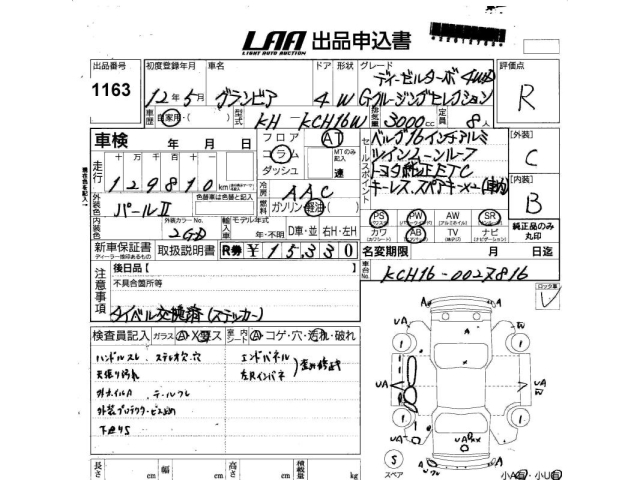 LAA 出品申込書
LIGHT AUTO AUCTION
出品番号 初度登録年月 車名 ドア 形状 グレード 評価点
1163 12年5月 グランビア 4 W ディーゼルターボ 4WD
Gクルージングセレクション R
車歴 自家用・( ) 型式 KH-KCH16W 排気量 3000cc 定員 8人
車検 年 月 日
フロア コラム ダッシュ AT MTのみ記入 速
セールスポイント
ベルグ16インチアルミ
ツインムーンルーフ
トヨタ純正ETC
[外装] C
[内装] B
走行 十万 千百十 129810km
冷房 AAC
外装色 パールⅡ
色替車は色替と記入
燃料 ガソリン・軽油( )
内装色 外装カラーNo. 2GD
輸入車 モデル年式 年・不明 D車・並 右H・左H
PS AW SR
カワ AB TV ナビ
純正品のみ丸印
新車保証書 取扱説明書 R券 ¥15,330
ディーラー捺印あるもの
名変期限 月 日迄
注意事項
後日品[ ]
車台No. KCH16-0027816
不具合箇所等
タイベル交換済(ステッカー)
ロック車
検査員記入 ガラス A・X・ス 室シート 内 A・コゲ・穴・汚れ・破れ
ハンドルスレ ステレオ穴.穴 エンドパネル
天張り汚れ 左Rインパネ
歪み修正
下廻りS
長さ cm 幅 cm 高さ cm 積載量 kg
S
スペア
小A有・小U有